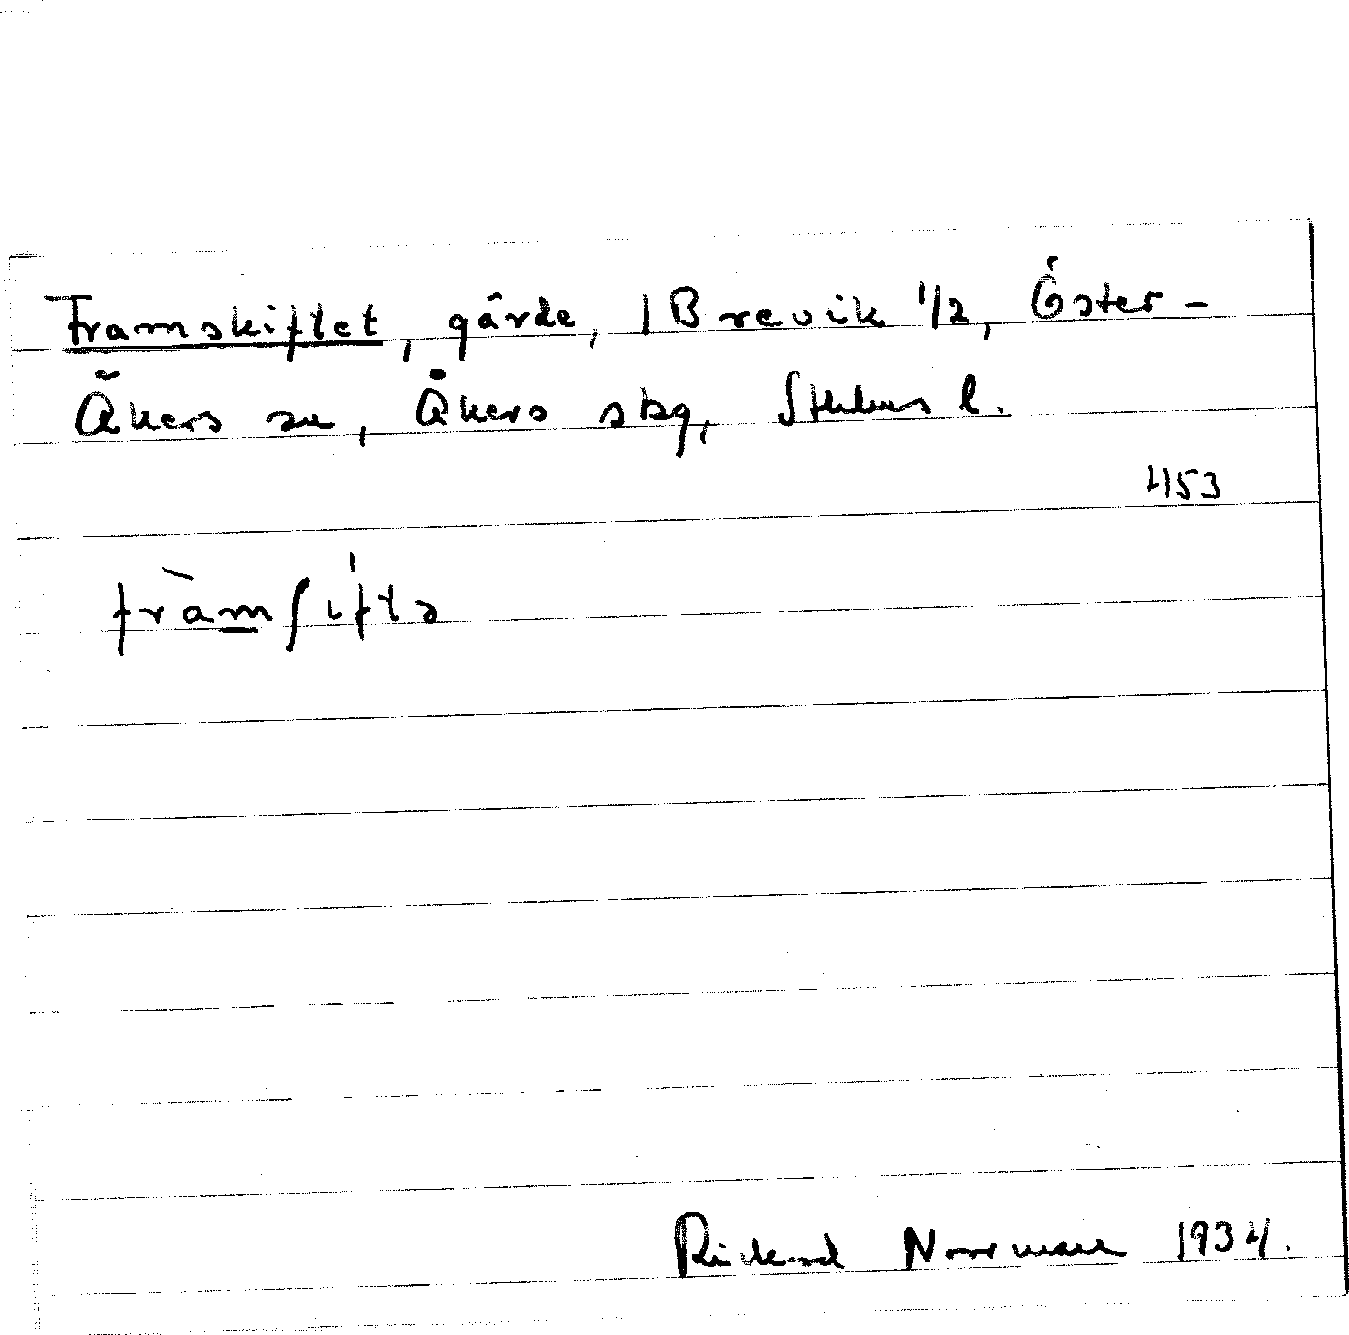 Framskiftet, gärde, 1 Brevik 1/2, Öster-
Åkers sn, Åkers skg, Sthlms l.
453
fràmʃiftə
Rickard Norrman 1934.